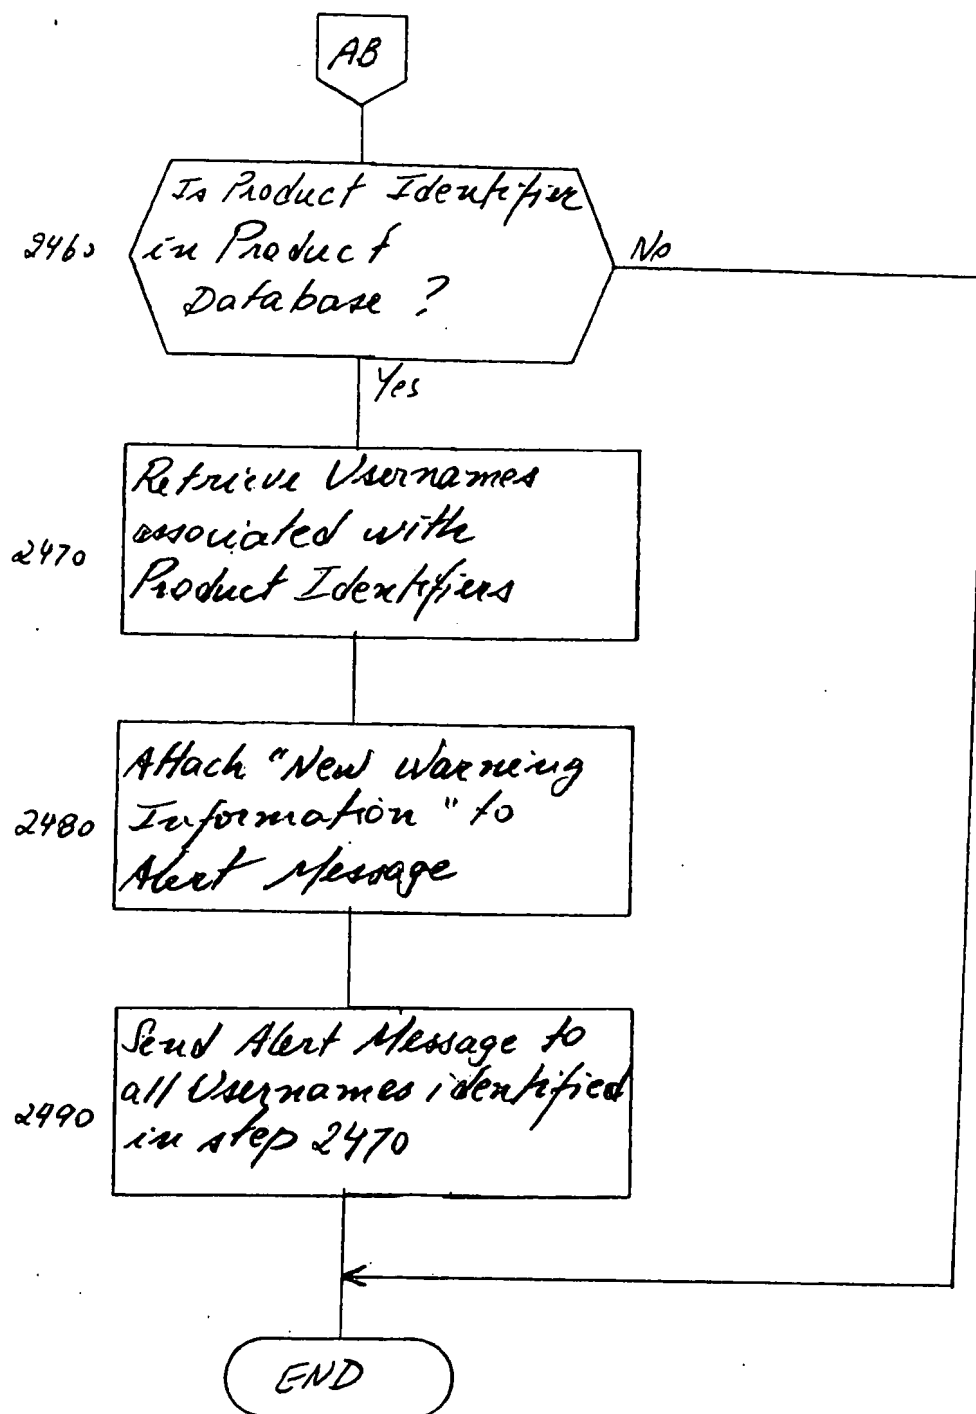 AB
Is Product Identifier
2460
in Product
No
Database ?
Yes
Retrieve Usernames
associated with
2470
Product Identifiers
Attach "New Warning
2480
Information" to
Alert Message
Send Alert Message to
all Usernames identified
2490
in step 2470
END